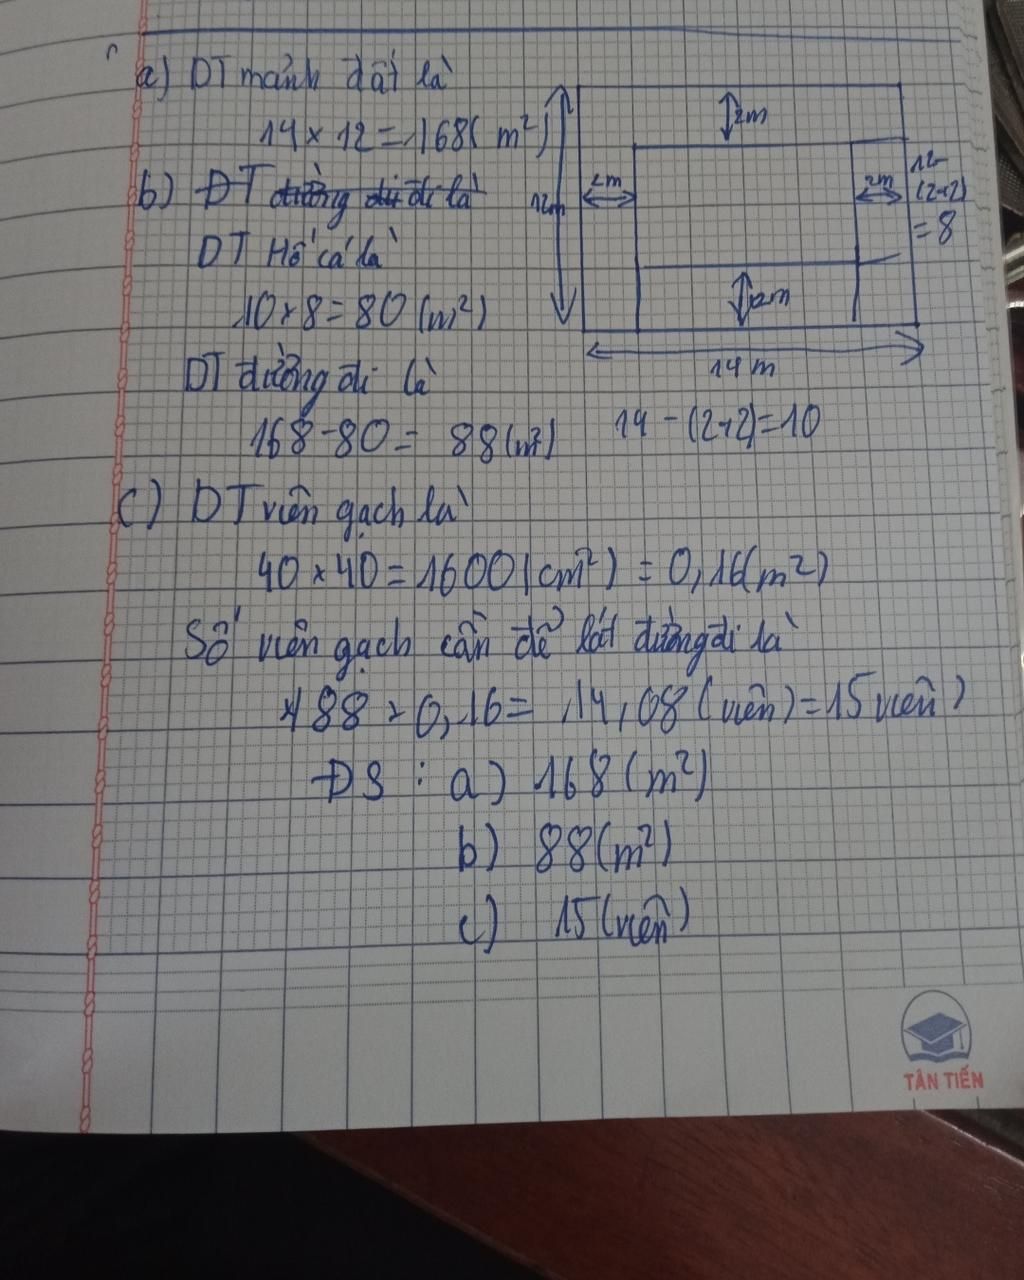 a) DT mảnh đất là
14 × 12 = 168( m²)
b) ĐT đường đi đi là
DT Hồ cá là
10 × 8 = 80 (m²)
DT đường đi là
168 - 80 = 88 (m²)
2m
2m
12m
2m
12-
(2+2)
= 8
2m
14 m
14 - (2+2) = 10
c) DT viên gạch là
40 × 40 = 1600 (cm²) = 0,16(m²)
Số viên gạch cần để lát đường đi là
88 × 0,16 = 14,08 (viên) = 15 viên)
ĐS : a) 168 (m²)
b) 88(m²)
c) 15(viên)
TÂN TIẾN